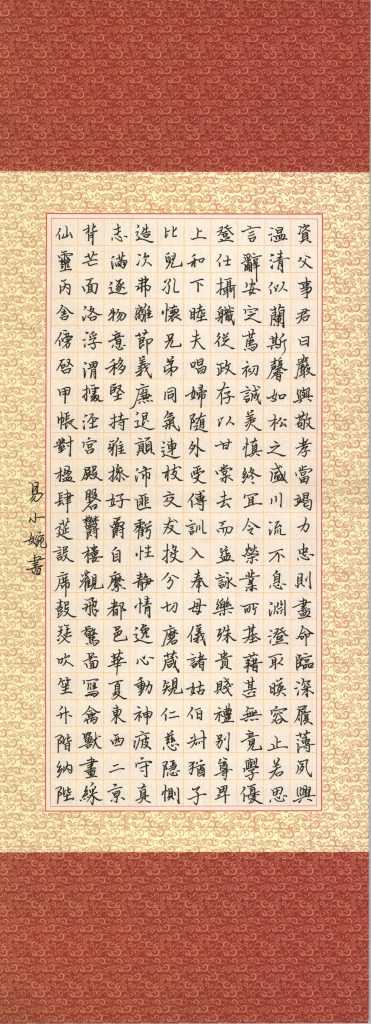 資父事君曰嚴與敬孝當竭力忠則盡命臨深履薄夙興
温清似蘭斯馨如松之盛川流不息淵澄取暎容止若思
言辭安定萬初誠美慎終宜令榮業所基藉甚無竟學優
登仕攝職從政存以甘棠去而益詠樂殊貴賤禮別尊卑
上和下睦夫唱婦随外受傅訓入奉母儀諸姑伯叔猶子
比兒孔懷兄弟同氣連枝交友投分切磨箴規仁慈隱惻
造次弗離節義廉退顛沛匪虧性静情逸心動神疲守真
志滿逐物意移堅持雅操好爵自縻都邑華夏東西二京
背芒面洛浮渭據涇宮殿磐鬱樓觀飛驚圖寫禽獸畫綵
仙靈丙舍傍啓甲帳對楹肆筵設席鼓瑟吹笙升階納陛
易小婉書